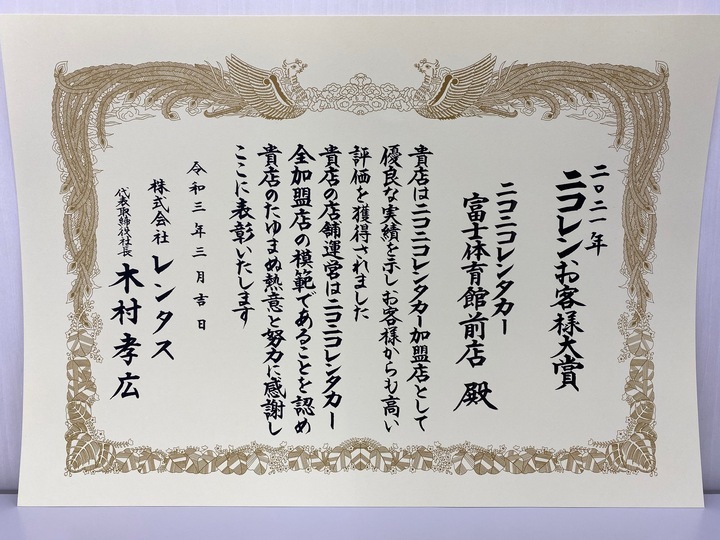 二〇二一年
ニコレンお客様大賞
ニコニコレンタカー
富士体育館前店 殿
貴店はニコニコレンタカー加盟店として
優良な実績を示しお客様からも高い
評価を獲得されました
貴店の店舗運営はニコニコレンタカー
全加盟店の模範であることを認め
貴店のたゆまぬ熱意と努力に感謝し
ここに表彰いたします
令和三年三月吉日
株式会社レンタス
代表取締役社長 木村孝広